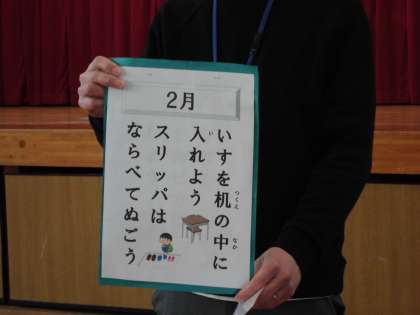 2月
いすを机の中に
入れよう
スリッパは
ならべてぬごう
つくえ
なか
い